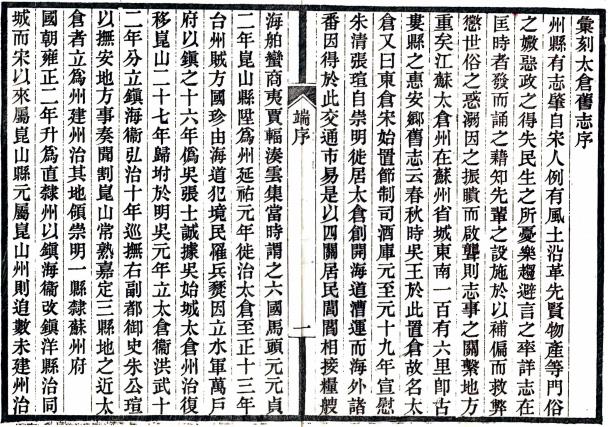 彙刻太倉舊志序
州縣有志肇自宋人例有風土沿革先賢物產等門俗
之媺惡政之得失民生之所憂樂趨避言之率詳志在
匡時者發而誦之藉知先輩之設施於以補偏而救弊
懲世俗之惑溺因之振聵而啟聾則志事之關繫地方
重矣江蘇太倉州在蘇州省城東南一百有六里卽古
婁縣之惠安鄉舊志云春秋時吳王於此置倉故名太
倉又曰東倉宋始置節制司酒庫元至元十九年宣慰
朱清張瑄自崇明徙居太倉創開海道漕運而海外諸
番因得於此交通市易是以四關居民閭閻相接糧艘
端序
一
海舶蠻商夷賈輻湊雲集當時謂之六國馬頭元元貞
二年崑山縣陞爲州延祐元年徙治太倉至正十三年
台州賊方國珍由海道犯境民罹兵燹因立水軍萬戶
府以鎮之十六年僞吳張士誠據吳始城太倉州治復
移崑山二十七年歸附於明吳元年立太倉衞洪武十
二年分立鎮海衞弘治十年巡撫右副都御史朱公瑄
以撫安地方事奏聞割崑山常熟嘉定三縣地之近太
倉者立爲州建州治其地領崇明一縣隸蘇州府
國朝雍正二年升爲直隸州以鎮海衞改鎮洋縣治同
城而宋以來屬崑山縣元屬崑山州則追數未建州治